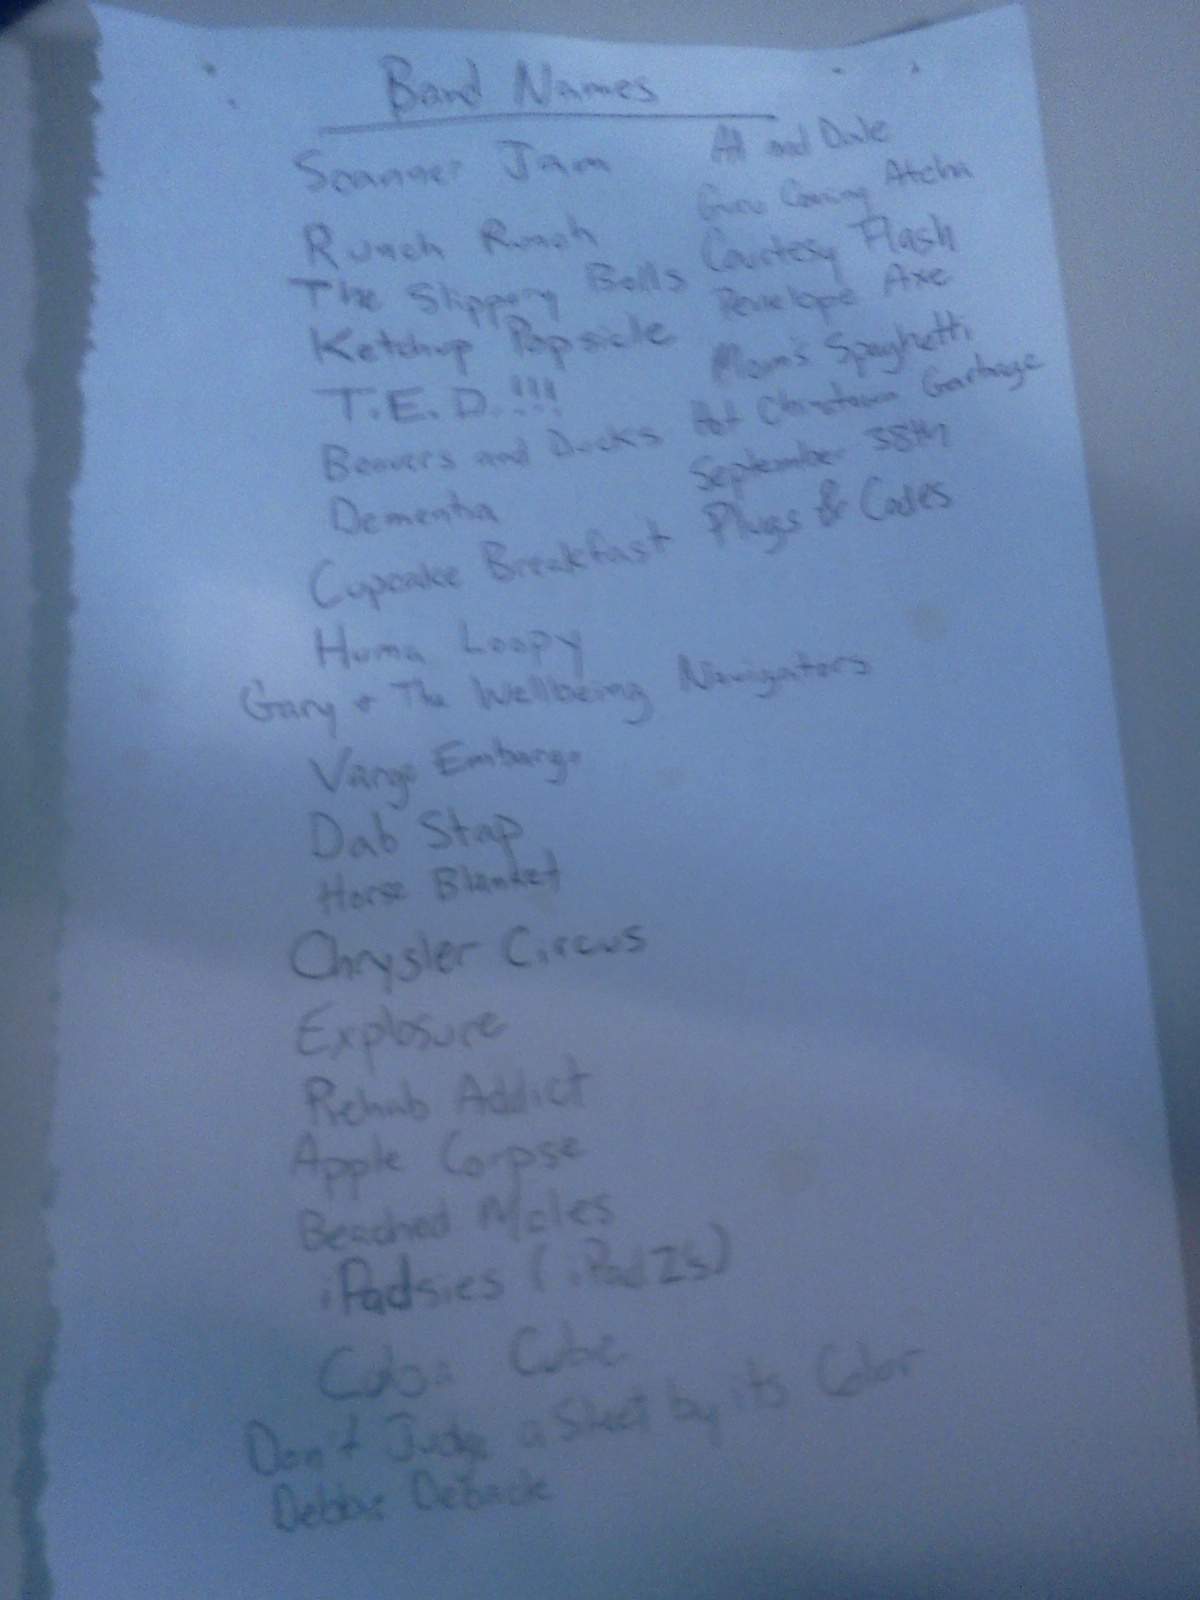 Band Names
Scanner Jam
Runch Runch
The Slippery Balls
Ketchup Popsicle
T.E.D.!!!
Beavers and Ducks
Dementia
Cupcake Breakfast
Huma Loopy
Gary + The Wellbeing Navigators
Vargo Embargo
Dab Stap
Horse Blanket
Chrysler Circus
Explosure
Rehab Addict
Apple Corpse
Beached Moles
iPadsies (iPadZs)
Cuba Cube
Don't Judge a Sheet by its Color
Debbie Deback
and Dale
Guru Coming Atcha
Courtesy Flash
Penelope Axe
Mom's Spaghetti
Hot Chinatown Garbage
September 38th
Plugs & Codes